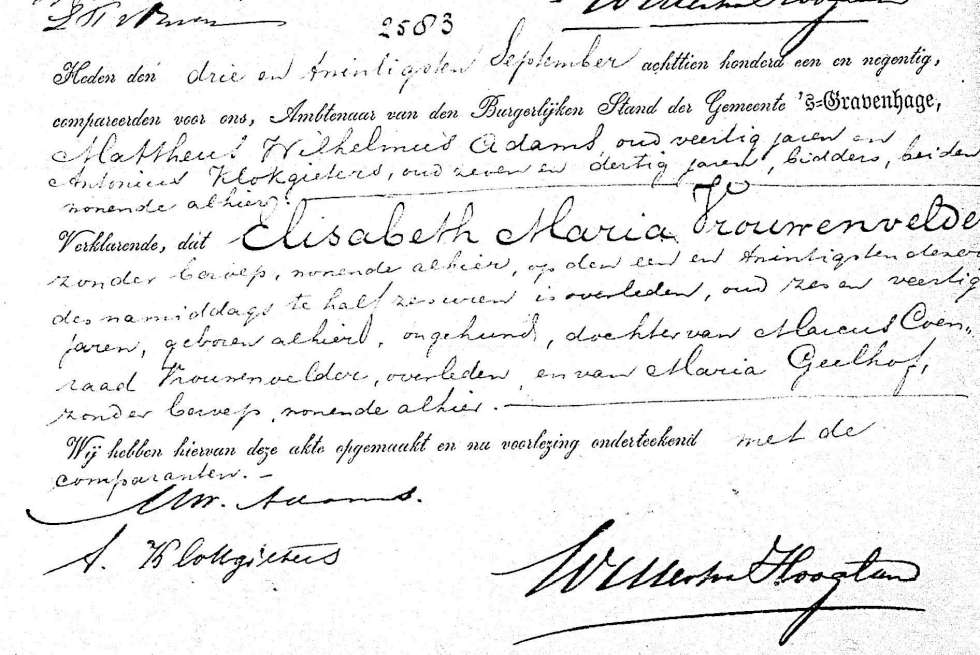 2583
Heden den drie en twintigsten September achttien honderd een en negentig,
compareerden voor ons, Ambtenaar van den Burgerlijken Stand der Gemeente 's=Gravenhage,
Mattheus Wilhelmus Adams, oud veertig jaren en
Antonius Klokgieters, oud zeven en dertig jaren, bidders, beiden
wonende alhier.
Verklarende, dat Elisabeth Maria Vrouwenvelder
zonder beroep, wonende alhier, op den een en twintigsten dezer
des namiddags te half zes uren is overleden, oud zes en veertig
jaren, geboren alhier, ongehuwd, dochter van Marcus Coen-
raad Vrouwenvelder, overleden, en van Maria Geelhof,
zonder beroep, wonende alhier.
Wij hebben hiervan deze akte opgemaakt en na voorlezing onderteekend met de
comparanten.
MW. Adams.
A. Klokgieters